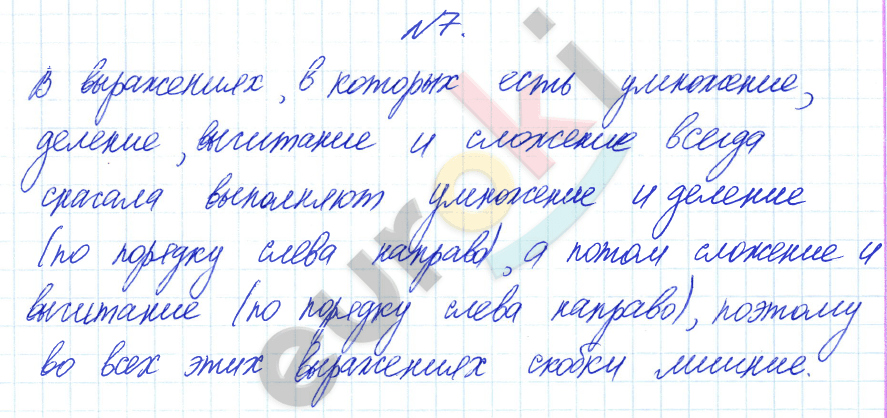 №7.
В выражениях, в которых есть умножение,
деление, вычитание и сложение всегда
сначала выполняют умножение и деление
(по порядку слева направо), а потом сложение и
вычитание (по порядку слева направо), поэтому
во всех этих выражениях скобки лишние.
euroki